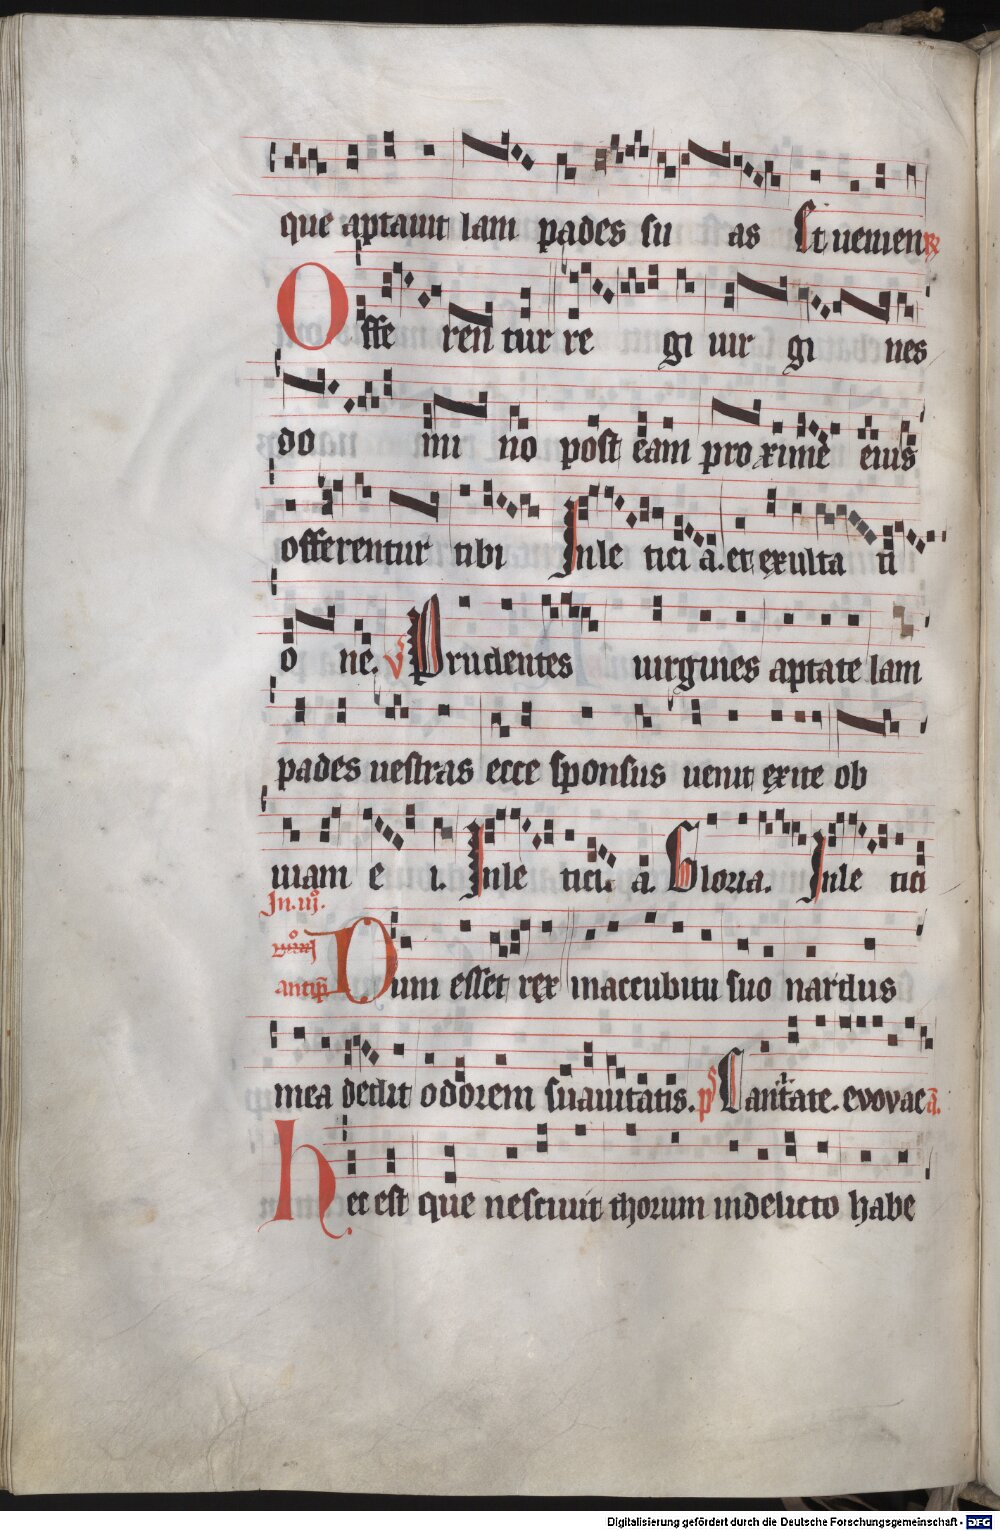 que aptauit lam pades su as Et uenien R
Offe ren tur re gi uir gi nes
do mi no post eam pro xime eius
offerentur tibi Inle tici a. et exulta ti
o ne. V Prudentes uirgines aptate lam
pades uestras ecce sponsus uenit exite ob
uiam e i. Inle ticia a. Gloria. Inle tici
In. iij.
antip Dum esset rex inaccubitu suo nardus
mea dedit odorem suauitatis. ps Cantate. evovae a.
Hec est que nesciuit thorum indelicto habe
Digitalisierung gefördert durch die Deutsche Forschungsgemeinschaft - DFG